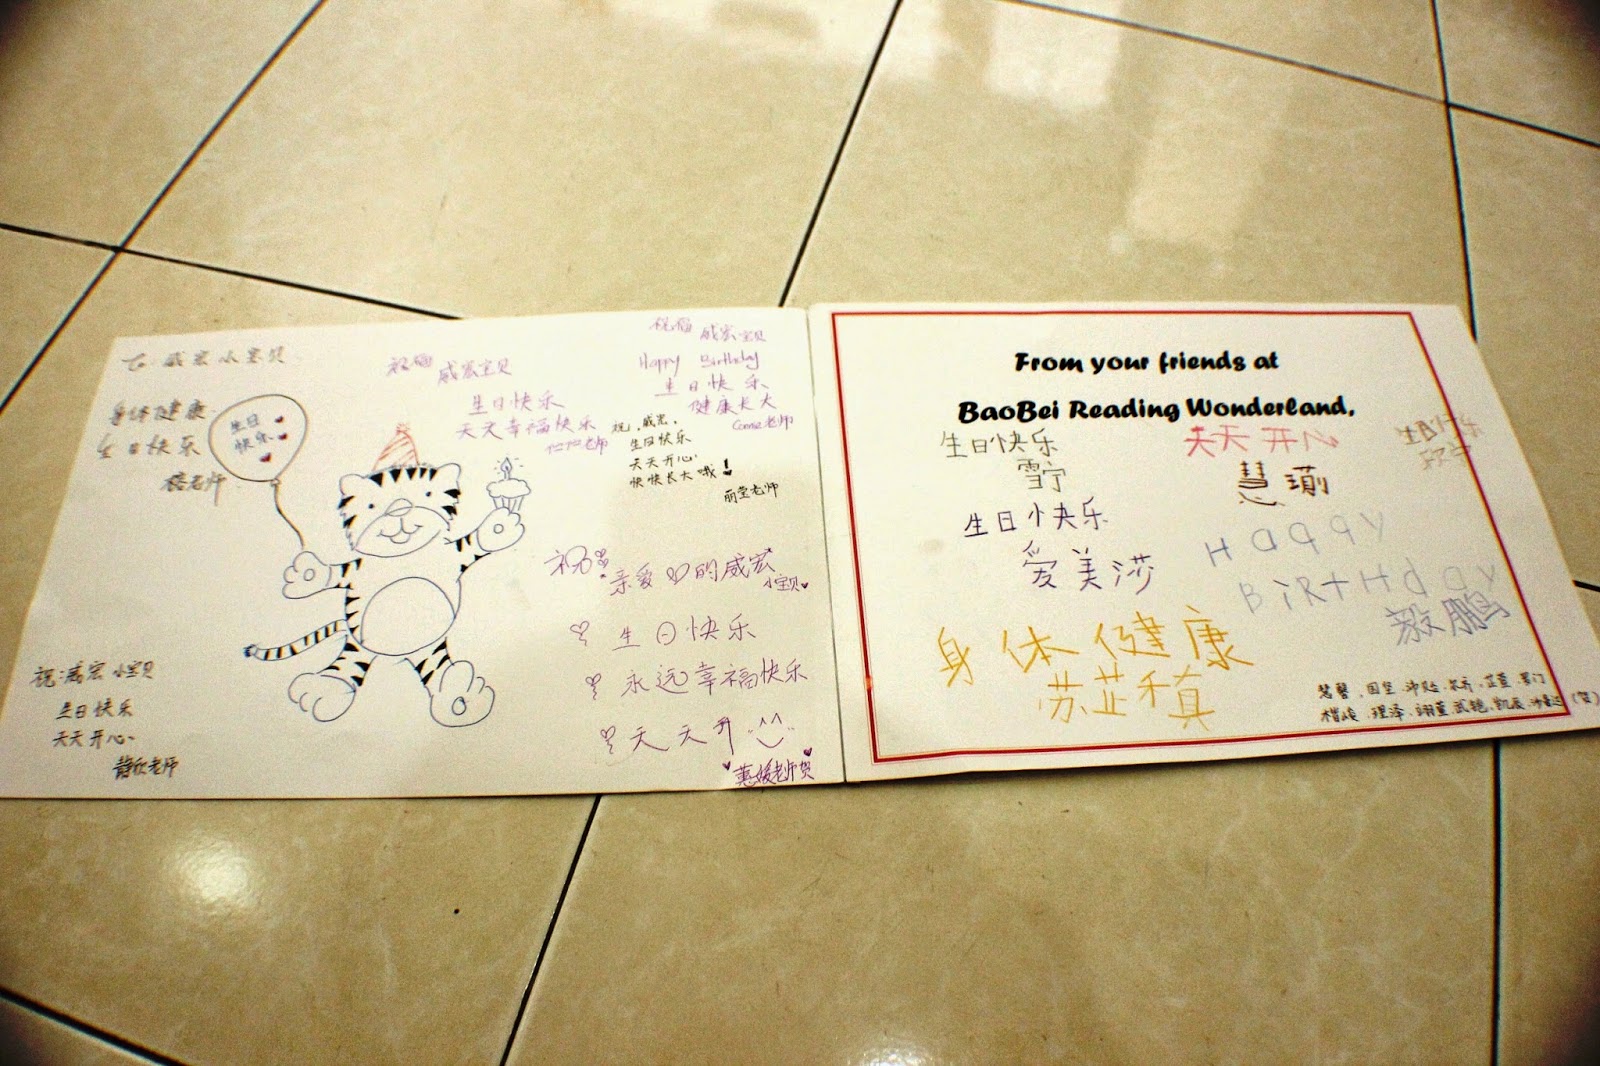 To: 威宏小宝贝
身体健康
生日快乐
老师
生日
快乐
祝福 威宏宝贝
生日快乐
天天幸福快乐
老师
祝福 威宏宝贝
Happy Birthday
生日快乐
健康长大
老师
祝,威宏,
生日快乐
天天开心
快快长大哦!
丽莹老师
祝亲爱的威宏
小宝贝
生日快乐
永远幸福快乐
天天开
惠媛老师贺
祝:威宏小宝贝
生日快乐
天天开心
静欣老师
From your friends at
BaoBei Reading Wonderland,
生日快乐
雪宁
天天开心
慧
生日快乐
生日快乐
爱美莎
Haqqy
BiRtHday
毅鹏
身体健康
苏芷禾真
(贺)